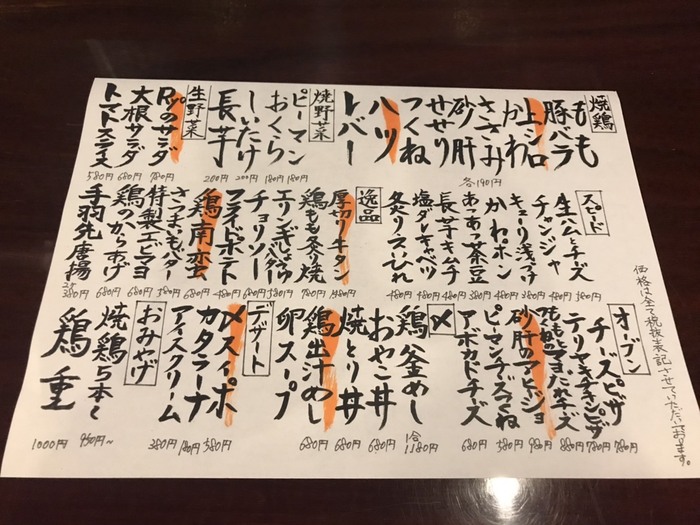 焼鶏
もも
豚バラ
上シロ
かわ
ささみ
砂肝
せせり
つくね
ハツ
レバー
各190円
焼野菜
ピーマン 180円
おくら 180円
しいたけ 200円
長芋 200円
生野菜
Ryoのサラダ 780円
大根サラダ 680円
トマトスライス 580円
スピード
生ハムとチーズ 580円
チャンジャ 480円
キューリ浅づけ 380円
かわポン 480円
あつあつ茶豆 380円
長芋キムチ 480円
塩ダレキャベツ 480円
炙りスルメいれ 480円
逸品
厚切り牛タン
鶏もも炙り焼 780円
エリンギじょうゆバター 580円
チョリソー 680円
フライドポテト 480円
鶏南蛮 680円
さつまいもバター 580円
特製エビマヨ
鶏のからあげ 680円
手羽先唐揚 2本 380円
オーブン
チーズピザ 780円
テリヤキチキンピザ 780円
880円
砂肝のアヒージョ 980円
ピーマンチーズつくね 580円
アボカドチーズ 680円
〆
鶏釜めし 1合 1180円
おやこ丼 680円
焼とり丼 680円
鶏出汁めし 680円
卵スープ
デザート
〆スイーポ 580円
カタラーナ
アイスクリーム 380円
おみやげ
焼鶏5本〜 950円〜
鶏重 1000円
価格は全て税抜表記させていただいております。